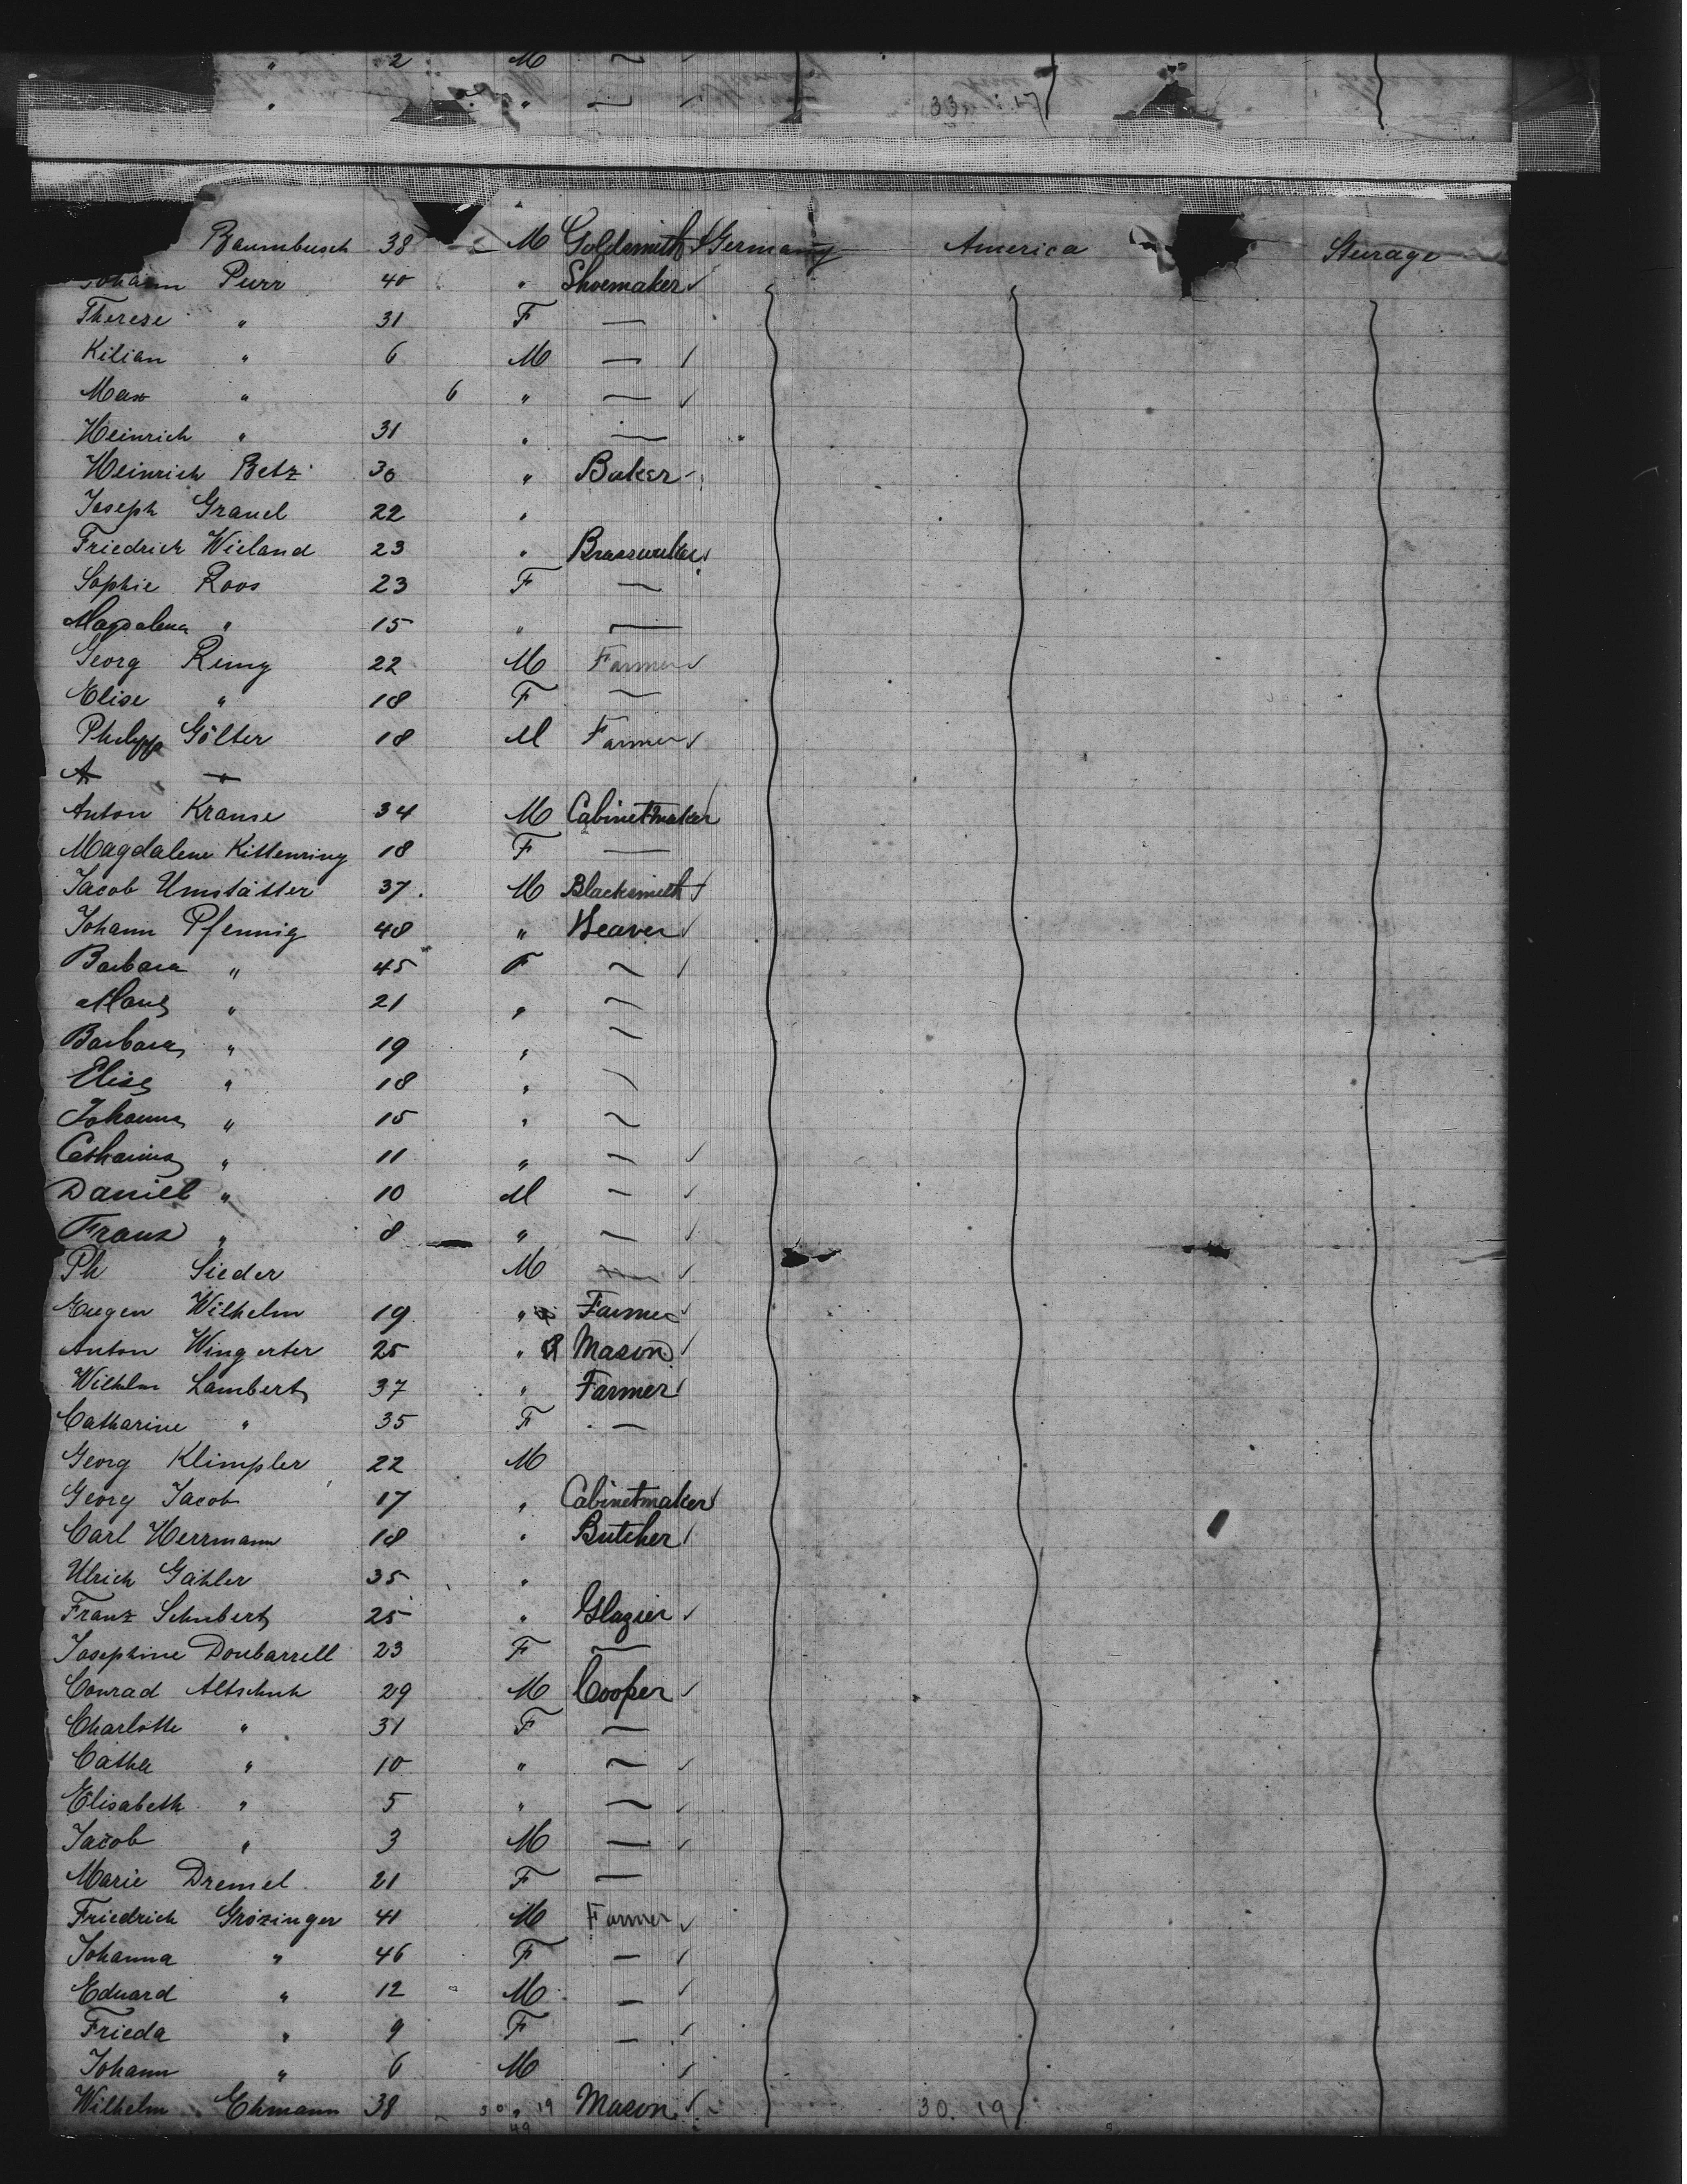 " 2 M —
" " — 33. 17
Baumbusch 38 M Goldsmith Germany America Steerage
Johann Purr 40 " Shoemaker
Therese " 31 F —
Kilian " 6 M —
Max " 6 " —
Heinrich " 31 " —
Heinrich Betz 30 " Baker
Joseph Granel 22 "
Friedrich Wieland 23 "
Sophie Roos 23 F —
Magdalena " 15 " —
Georg Remy 22 M Farmer
Elise " 18 F —
Philipp Gölter 18 M Farmer
A "
Anton Krause 34 M Cabinetmaker
Magdalene Kittenring 18 F —
Jacob Umstätter 37 M Blacksmith
Johann Pfennig 48 " Weaver
Barbara " 45 F —
" 21 " —
Barbara " 19 " —
Elise " 18 " —
Johanna " 15 " —
Catharina " 11 " —
Daniel " 10 M —
Franz " 8 " —
Ph Sieder M —
Eugen Wilhelm 19 " Farmer
Anton Wingerter 25 " Mason
Wilhelm Lambert 37 " Farmer
Catharine " 35 F —
Georg Klimpler 22 M
Georg Jacob 17 " Cabinetmaker
Carl Herrmann 18 " Butcher
Ulrich Gähler 35 "
Franz Schubert 25 " Glazier
Josephine Doubarrell 23 F —
Conrad Altschuh 29 M Cooper
Charlotte " 31 F —
Cathe " 10 " —
Elisabeth " 5 " —
Jacob " 3 M —
Marie Dremel 21 F —
Friedrich Grözinger 41 M Farmer
Johanna " 46 F —
Eduard " 12 M —
Frieda " 9 F —
Johann " 6 M
Wilhelm Ehmann 38 30 " 19 Mason 30. 19
49